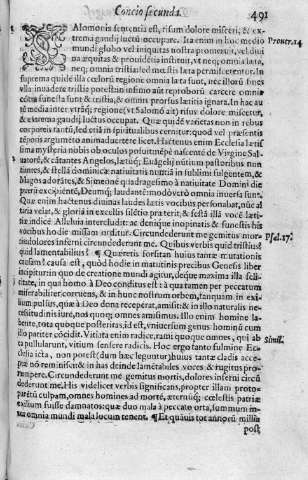 Concio secunda. 491
SAlomonis sententia est, risum dolore misceri, & ex-
trema gaudij luctum occupare. Ita enim in hoc medio Prouer.14
mundi globo vel iniquitas nostra promeruit, vel diui
na æquitas & prouidentia instituit, vt neq; omnia læta,
neq; omnia tristia vel mœsta permiscerentur. In
suprema quidē illa cælesti regione omnia læta sunt, nec vllus finis
vlla inuadere tristia possunt:
infimo aūt reptoborū carcere omnia
& tristia, & omnia prorsus lætitia ignara. In hac au
tē media inter vtrāq; regione (vt Salomō ait) risus dolore miscetur,
& extrema gaudij luctus occupat. Quæ quidē varietas non in rebus
corporeis tantū, sed etiā in spiritualibus cernitur: quod vel præsentis
tēporis argumento animaduertere licet. Hactenus enim Ecclesia læti
mysterijs nobis ob oculos positis de Virgine Sal
uatorē, & cātantes Angelos, lætuq; Euāgelij nūtium pastoribus nun
tiantes, & stella dominicæ natiuitatis nuntia in sublimi fulgentem, &
Magos adorātes, & Simeonē quadragesimo à natiuitate Domini die
præ exultent, Deumq; laudante modo vertò omnia inuersa sunt.
Quæ enim hactenus diuinis laudes lætis vocibus personabat, nūc al
taria velat, & gloria in excelsis silētio præterit, & festā illā vocē læti-
tiæ indicē Alleluia intercludit: ac denique inopinatis & funestis his
vocibus hodie missam orditur. Circundederunt me gemitus mortis, Psal.17.
dolores inferni circundederunt me. Quibus verbis quid tristius?
quid lamentabilius? ¶ Quæretis forsitan huius tantæ mutationis
causa est, quòd hodie in matutinis precibus Genesis liber
incipitur in quo de creatione mundi agitur, deque maxima illa felici-
tate, in qua homo à Deo conditus est: à qua tamen per peccatum
miserabiliter corruens, & in hunc nostrum orbem, tanquam in exi
lium pulsus, quæ à Deo dona receperat, amisit: & in illo naturalis ne-
cessitudinis iure, nos quoq; omnes amisimus. Illo enim homine la-
bente, tota quoque posteritas, id est, vniuersum genus hominū cum
illo pariter cōcidit. Vitiata enim radice, rami quoque omnes, qui ab Simil.
illa pullularunt, vitium sensere radicis. Hoc ergo tanto fulmine Ec-
clesia icta, non potest (dum hæc leguntur) huius tantæ cladis acce-
ptæ nō reminisci: & in has deinde lamētabiles voces & rugitus pro-
rumpere. Circundederunt me gemitus mortis, dolores inferni circū
dederunt me. His videlicet verbis significans, propter illam proto-
parētū culpam, omnes homines ad mortē, æternūq; cœlestis patriæ
exilium fuisse damnatos: quæ duo mala à peccato orta, summum in-
ter omnia mundi mala locum tenent. ¶ Et quāuis tot annorū millia
post